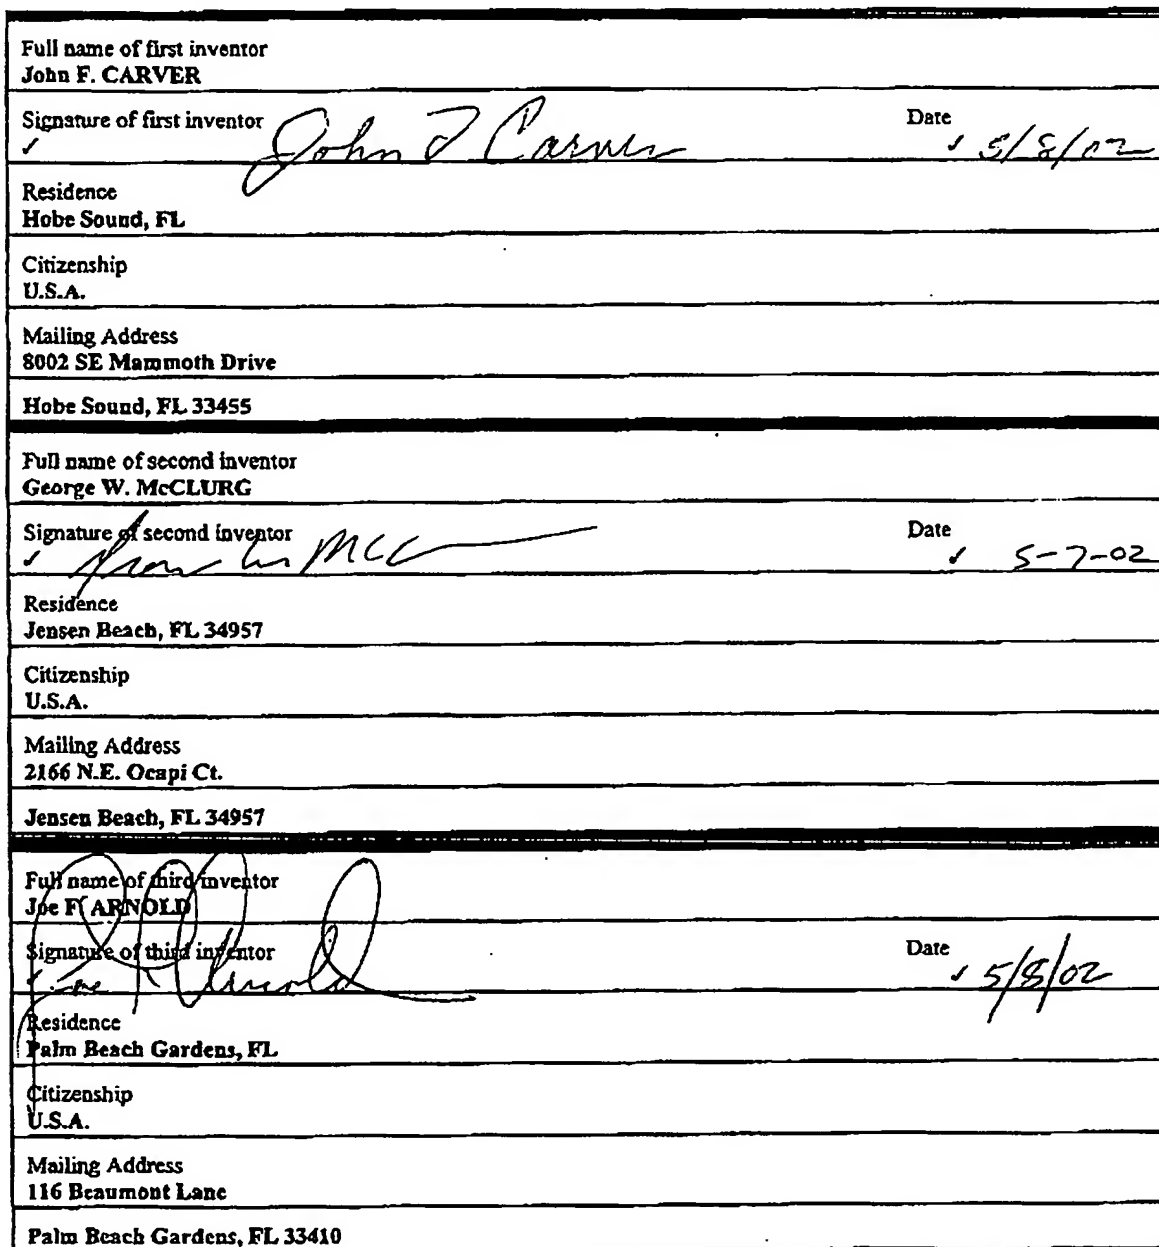 Full name of first inventor
John F. CARVER
Signature of first inventor John F Carver Date 5/8/02
Residence
Hobe Sound, FL
Citizenship
U.S.A.
Mailing Address
8002 SE Mammoth Drive
Hobe Sound, FL 33455
Full name of second inventor
George W. McCLURG
Signature of second inventor Date 5-7-02
Residence
Jensen Beach, FL 34957
Citizenship
U.S.A.
Mailing Address
2166 N.E. Ocapi Ct.
Jensen Beach, FL 34957
Full name of third inventor
Joe F. ARNOLD
Signature of third inventor Joe F Arnold Date 5/8/02
Residence
Palm Beach Gardens, FL
Citizenship
U.S.A.
Mailing Address
116 Beaumont Lane
Palm Beach Gardens, FL 33410